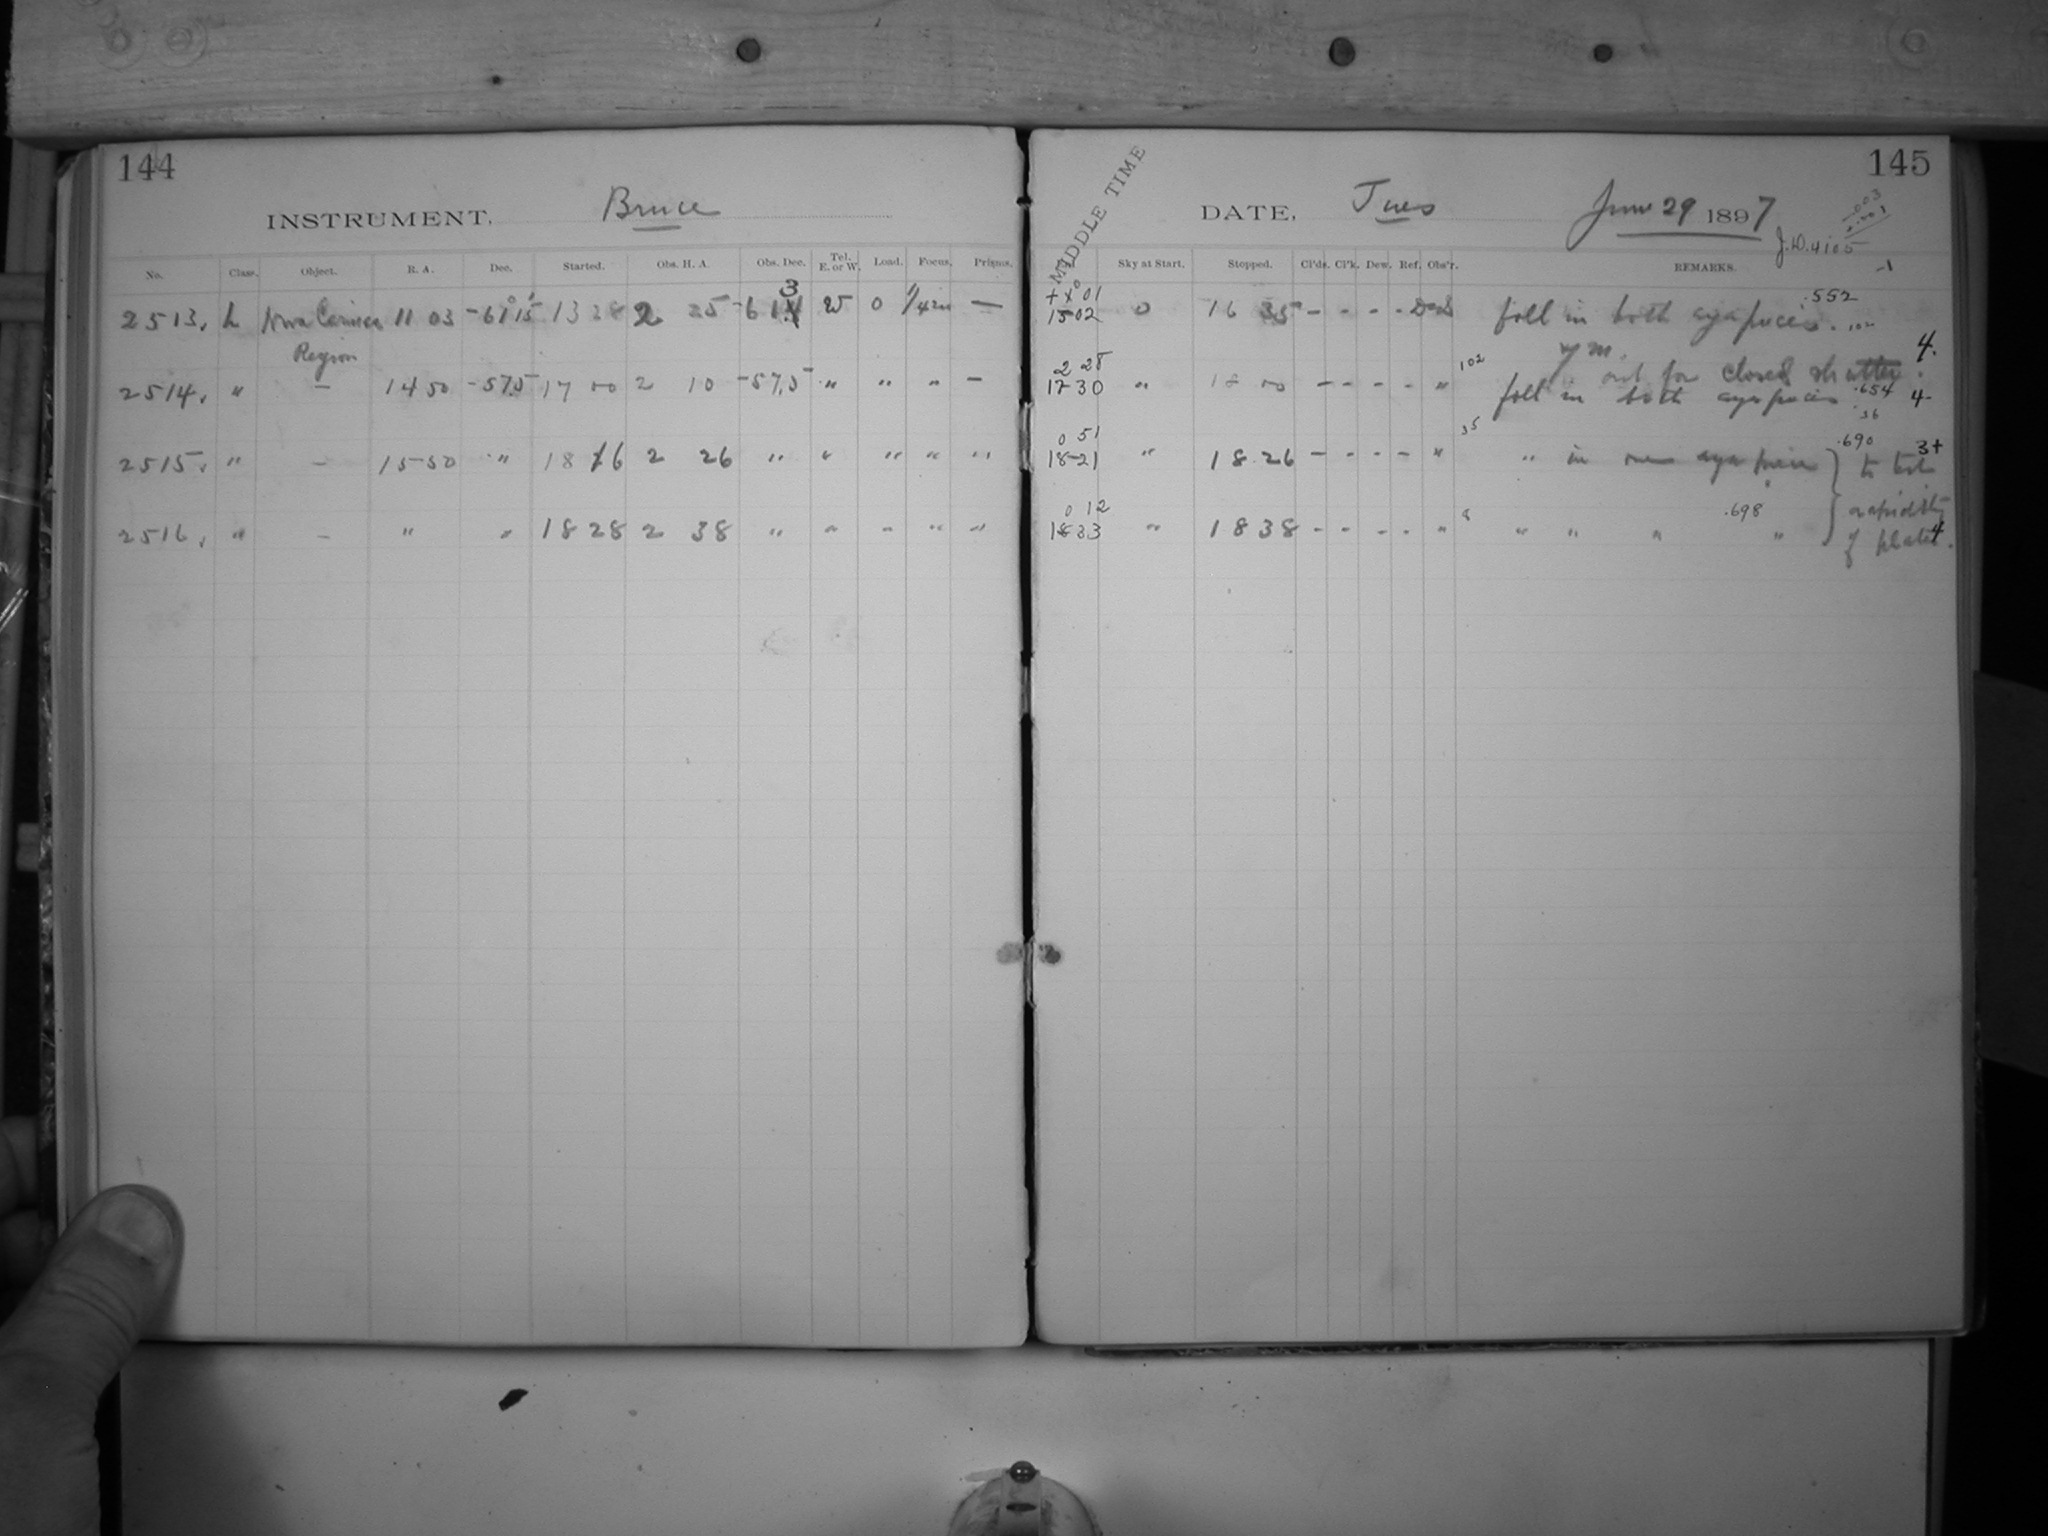 144
INSTRUMENT, Bruce
No. Class. Object. R. A. Dec. Started. Obs. H. A. Obs. Dec. Tel. E. or W. Load. Focus. Prisms.
2513. L Nova Carinae 11 03 -61°15' 13 28 2 25 -61 3 W 0 —
Region
2514. " — 14 50 -57.5 17 00 2 10 -57.5 " " " —
2515. " — 15 50 " 18 16 2 26 " " " " "
2516. " — " " 18 28 2 38 " " " " "
145
MIDDLE TIME
DATE, Tues June 29 1897
.003
.001
J.D. 4105
-1
Sky at Start. Stopped. Cl'ds. Cl'k. Dew. Ref. Obs'r. REMARKS.
01
15 02 0 16 35 - - - - foll in both .552
102
4.
out for closed shutter.
2 28
17 30 " 18 00 - - - - " 102 foll in both .654 4
36
0 51
18 21 " 18 26 - - - - " 35 " in one .690 to test 3+
0 12
18 33 " 18 38 - - - - " 8 " " " " .698 rapidity
of plates. 4